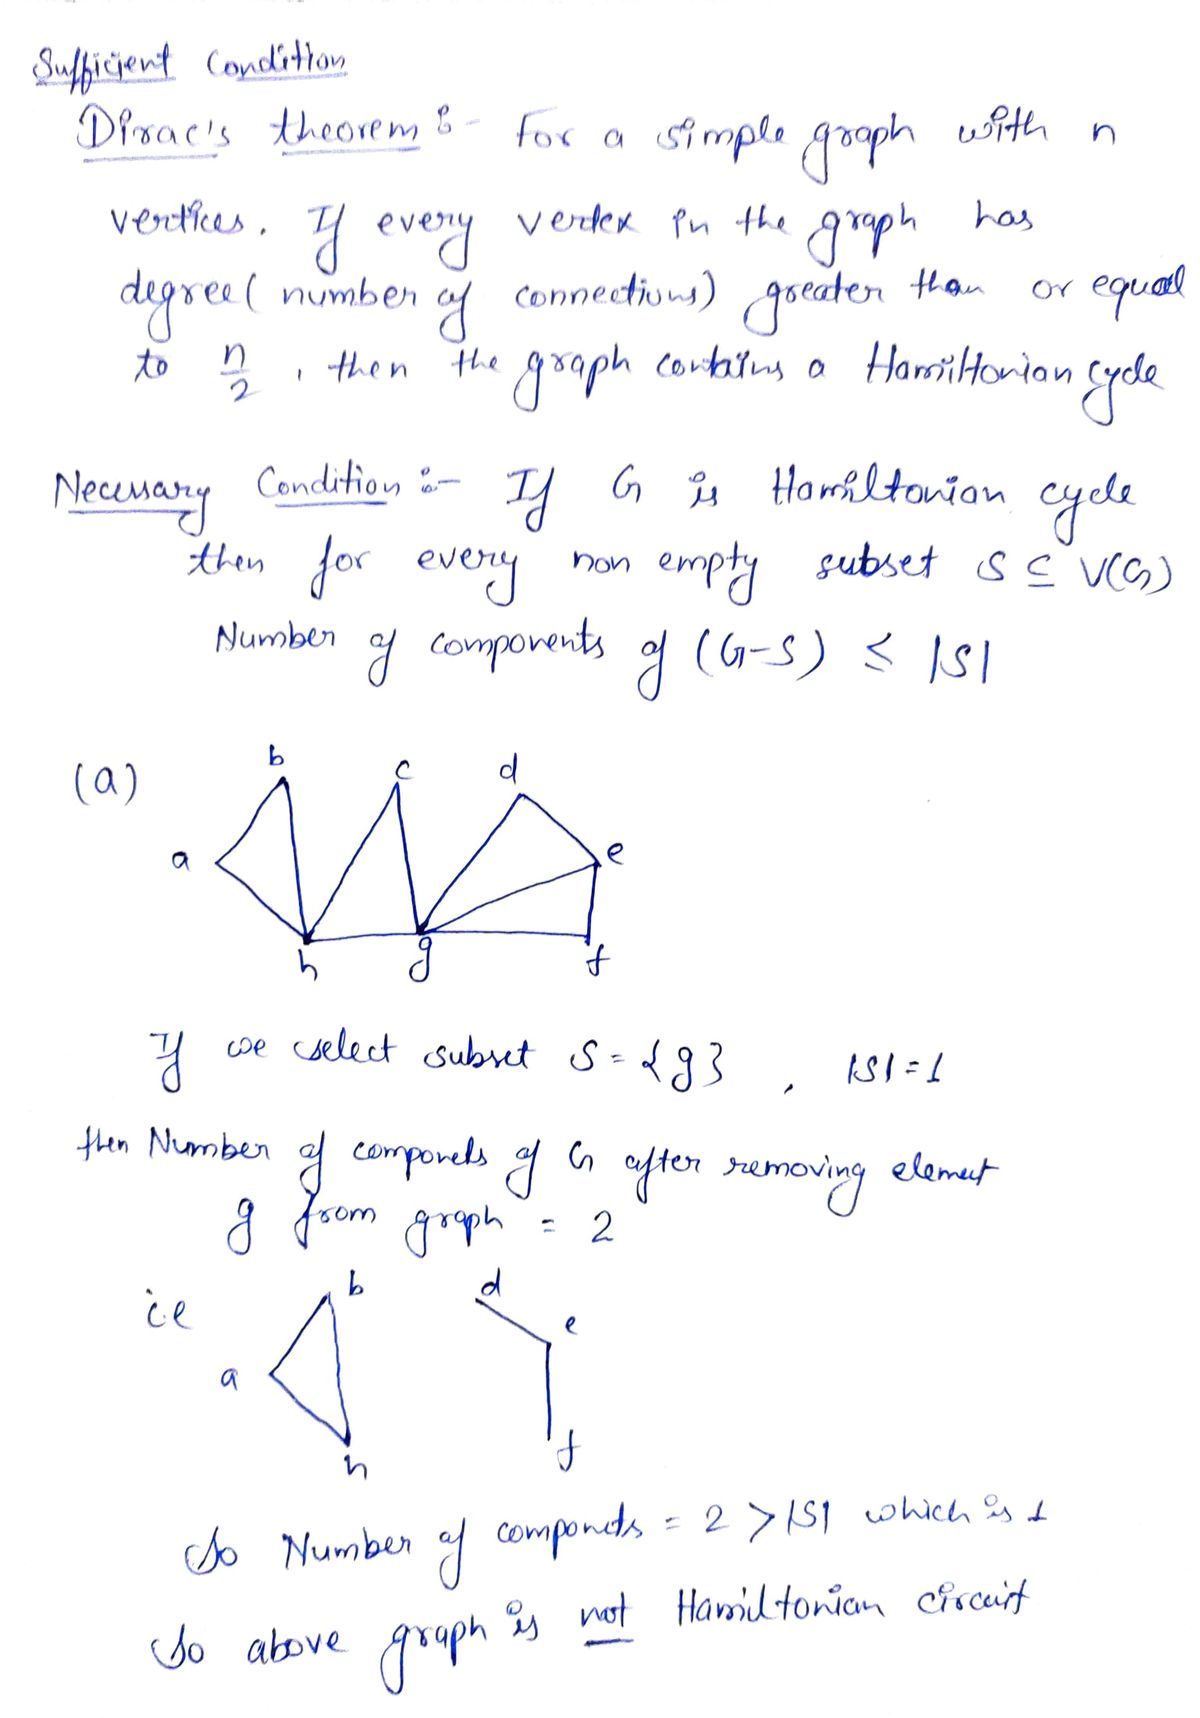 Sufficient Condition
Dirac's theorem :- For a simple graph with n
vertices. If every vertex in the graph has
degree( number of connections) greater than or equal
to n/2 , then the graph contains a Hamiltonian cycle
Necessary Condition :- If G is Hamiltonian cycle
then for every non empty subset S ⊆ V(G)
Number of components of (G-S) ≤ |S|
(a)
b c d
a e
h g f
If we select subset S = {g} , |S| = 1
then Number of componets of G after removing element
g from graph = 2
i.e
b d
e
a
h f
So Number of componets = 2 > |S| which is 1
So above graph is not Hamiltonian circuit